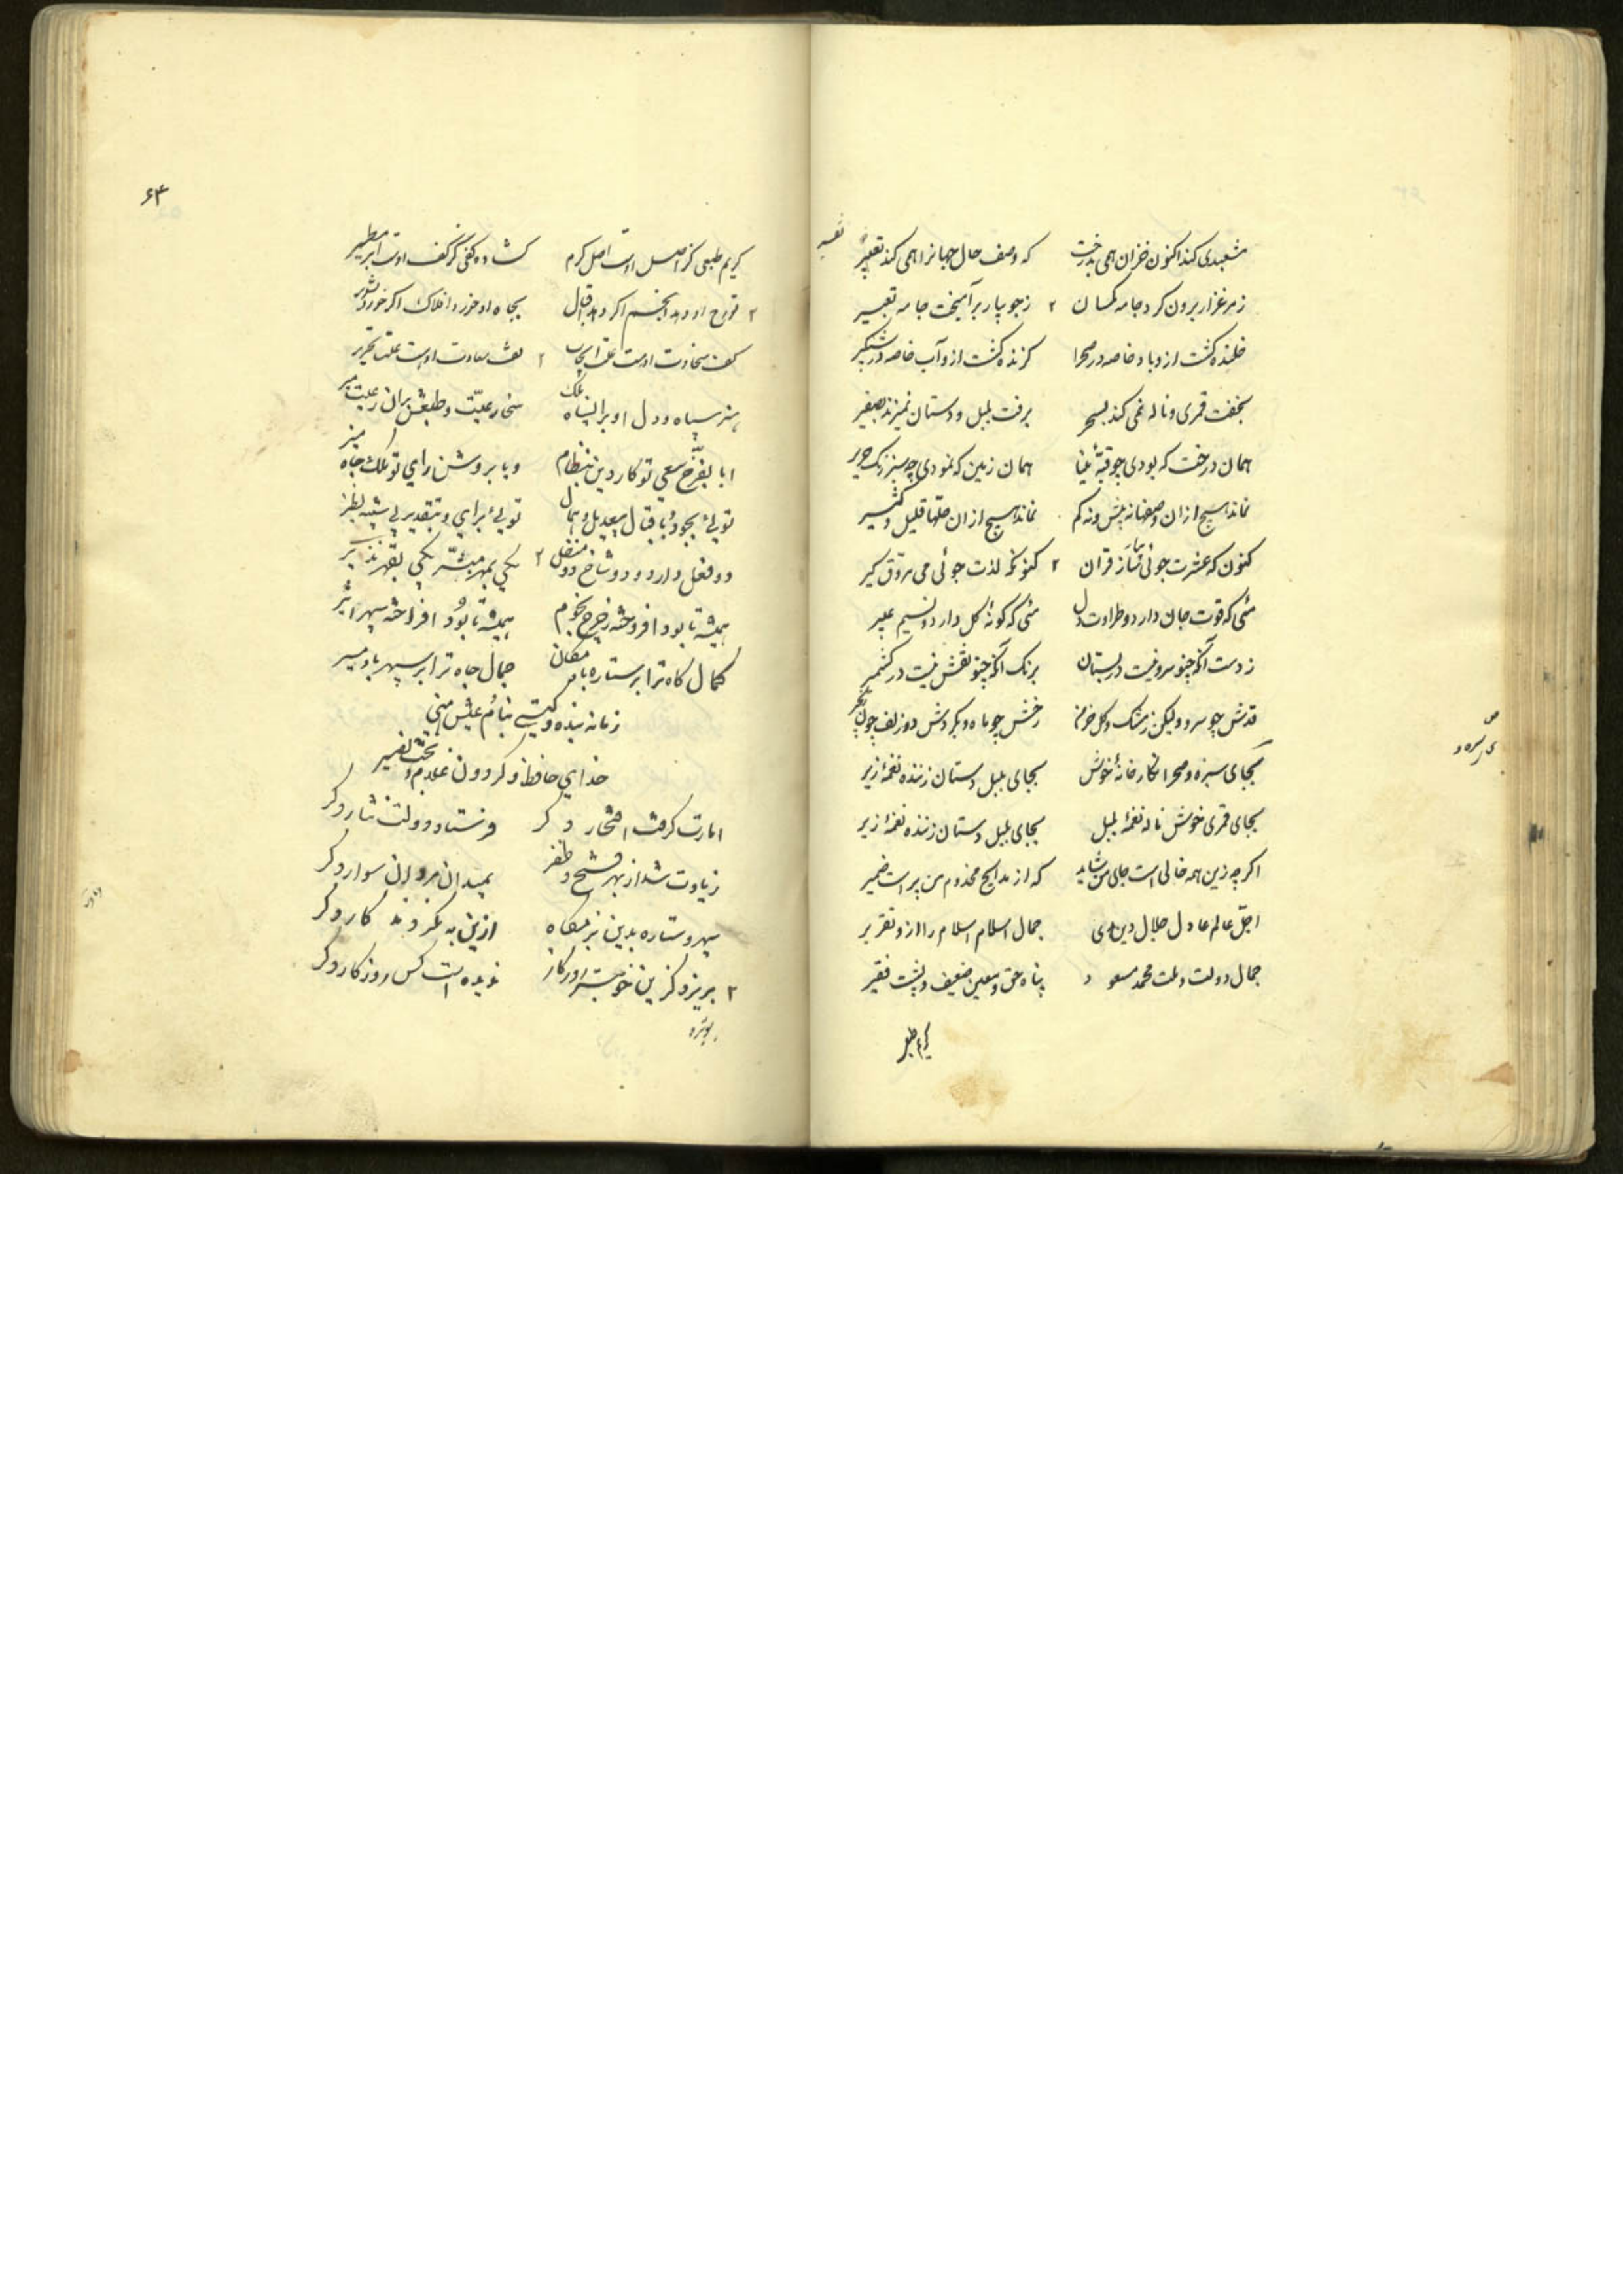 مشعبدی کند اکنون خزان همی بدرخت که وصف حال جهانرا همی کند تعبیر تفسیر
ز مرغزار برون کرد جامه کمسان ۲ ز جویبار برآمیخت جامه تعبیر
خلنده کشت ازو باد خاصه در صحرا کزنده کشت ازو آب خاصه در شبکیر
بخفت قمری و ناله نمی کند بسحر برفت بلبل و دستان نمیزند بصفیر
همان درخت که بودی چو قبهٔ مینا همان زمین که نمودی چو سبز رنک حریر
نماند هیچ ازان وصفها نه بیش و نه کم نماند هیچ ازان حلّها قلیل و کثیر
کنون که عشرت جوئی قران ۲ کنونکه لذت جوئی می مروّق کیر
مئی که قوت جان دارد و طراوت دل مئی که کونهٔ کل دارد و نسیم عبیر
ز دست آنکه چنو سرو نیست در بستان برنک آنکه چنو نقش نیست در کشمیر
قدش چو سرو ولیکن ز مشک و کل خرمن رخش چو ماه و بکردش دو زلف چون زنجیر
بجای سبزه و صحرا نکارخانهٔ خوش بجای بلبل دستان زننده نغمهٔ زیر
بجای قمری خوش ناله نغمهٔ بلبل بجای بلبل دستان زننده نغمهٔ زیر
اکرچه زین همه خالی است جای من شاید که از مدایح مخدوم من پر است ضمیر
اجلّ عالم عادل جلال دین هدی جمال اسلام اسلام را ازو تقریر
جمال دولت و ملت محمد مسعود پناه حق و معین ضعیف و پشت فقیر
کریم طبع
۶۳
کریم طبعی کز اصل اوست اصل کرم کشاده کفی کز کف اوست ابر مطیر
۲ فتوح او دهد انجم اکر دهد اقبال بجاه او خورد افلاک اکر خورد تشویر
کف سخاوت اوست علت ایجاب ۲ لف سعادت اوست علت تحریر
هنر سپاه و دل او برا سپاه ملک سخا رعیّت و طبعش بران رعیت میر
ایا بفرّخ سعی تو کار دین بنظام و یا بروشن رای تو ملک جاه منیر
تویی بجود و باقبال بیعدیل و همال تویی برای و بتقدیر بی شبیه و نظیر
دو فعل دارد و دو شاخ دو منقل ۲ یکی بمهر مبشّر یکی بقهر نذیر
همیشه تا بود افروخته ز چرخ نجوم همیشه تا بود افراخته سپهر اثیر
کمال کاه ترا بر ستاره باد مکان جمال جاه ترا بر سپهر باد مسیر
زمانه بنده و کیتی بنام عیش منی
خدای حافظ و کردون غلام و بخت نصیر
امارت کرفت افتخار دکر فرستاد دولت نثار دکر
زیادت شد از بهر فتح و ظفر بمیدان مردان سوار دکر
سپهر و ستاره بدین بزمکاه ازین به نکردند کار دکر
۲ بریزد کزین خوبتر روزکار ندیده است کس روزکار دکر